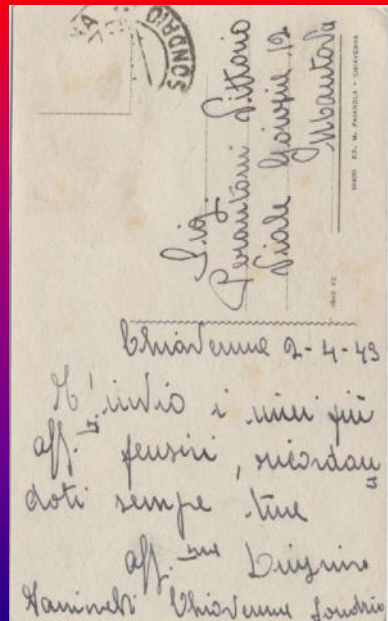 SONDRIO
Sig.
Perantoni Vittorio
Viale Gorizia 12
Mantova
CHIAVENNA
1942 XX
Chiavenna 2-4-43
T'invio i miei più
aff.ti pensieri, ricordan
doti sempre tuo
aff.mo Luigino
Chiavenna Sondrio